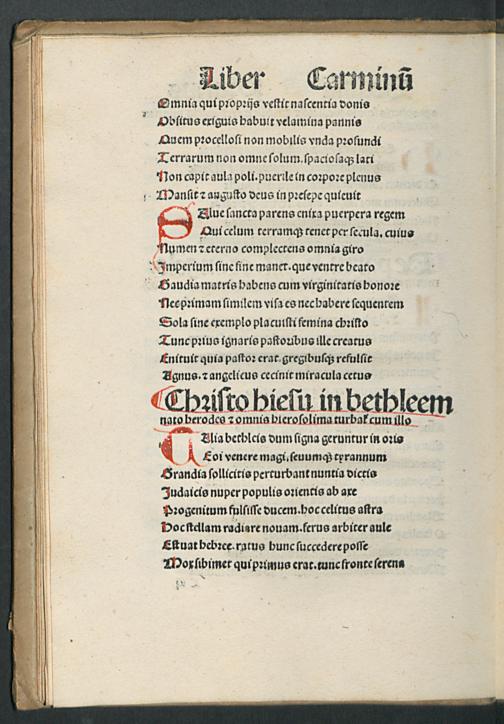 Liber Carminū
Omnia qui proprijs vestit nascentia donis
Obsitus exiguis habuit velamina pannis
Quem procellosi non mobilis vnda profundi
Terrarum non omne solum, spaciosaqȝ lati
Non capit aula poli. puerile in corpore plenus
Mansit ⁊ augusto deus in presepe quieuit
SAlue sancta parens enixa puerpera regem
Qui celum terramqȝ tenet per secula, cuius
Numen ⁊ eterno complectens omnia giro
Imperium sine fine manet. que ventre beato
Gaudia matris habens cum virginitatis honore
Nec primam similem visa es nec habere sequentem
Sola sine exemplo placuisti femina christo
Tunc prius ignaris pastoribus ille creatus
Enituit quia pastor erat. gregibusqȝ refulsit
Agnus. ⁊ angelicus cecinit miracula cetus
Christo hiesu in bethleem
nato herodes ⁊ omnis hierosolima turbat cum illo
TAlia bethleis dum signa geruntur in oris
Eoi venere magi. seuumqȝ tyrannum
Grandia sollicitis perturbant nuntia dictis
Iudaicis nuper populis orientis ab axe
Progenitum fulsisse ducem. hoc celitus astra
Hoc stellam radiare nouam. ferus arbiter aule
Estuat hebree. ratus hunc succedere posse
Mox sibimet qui primus erat. tunc fronte serena